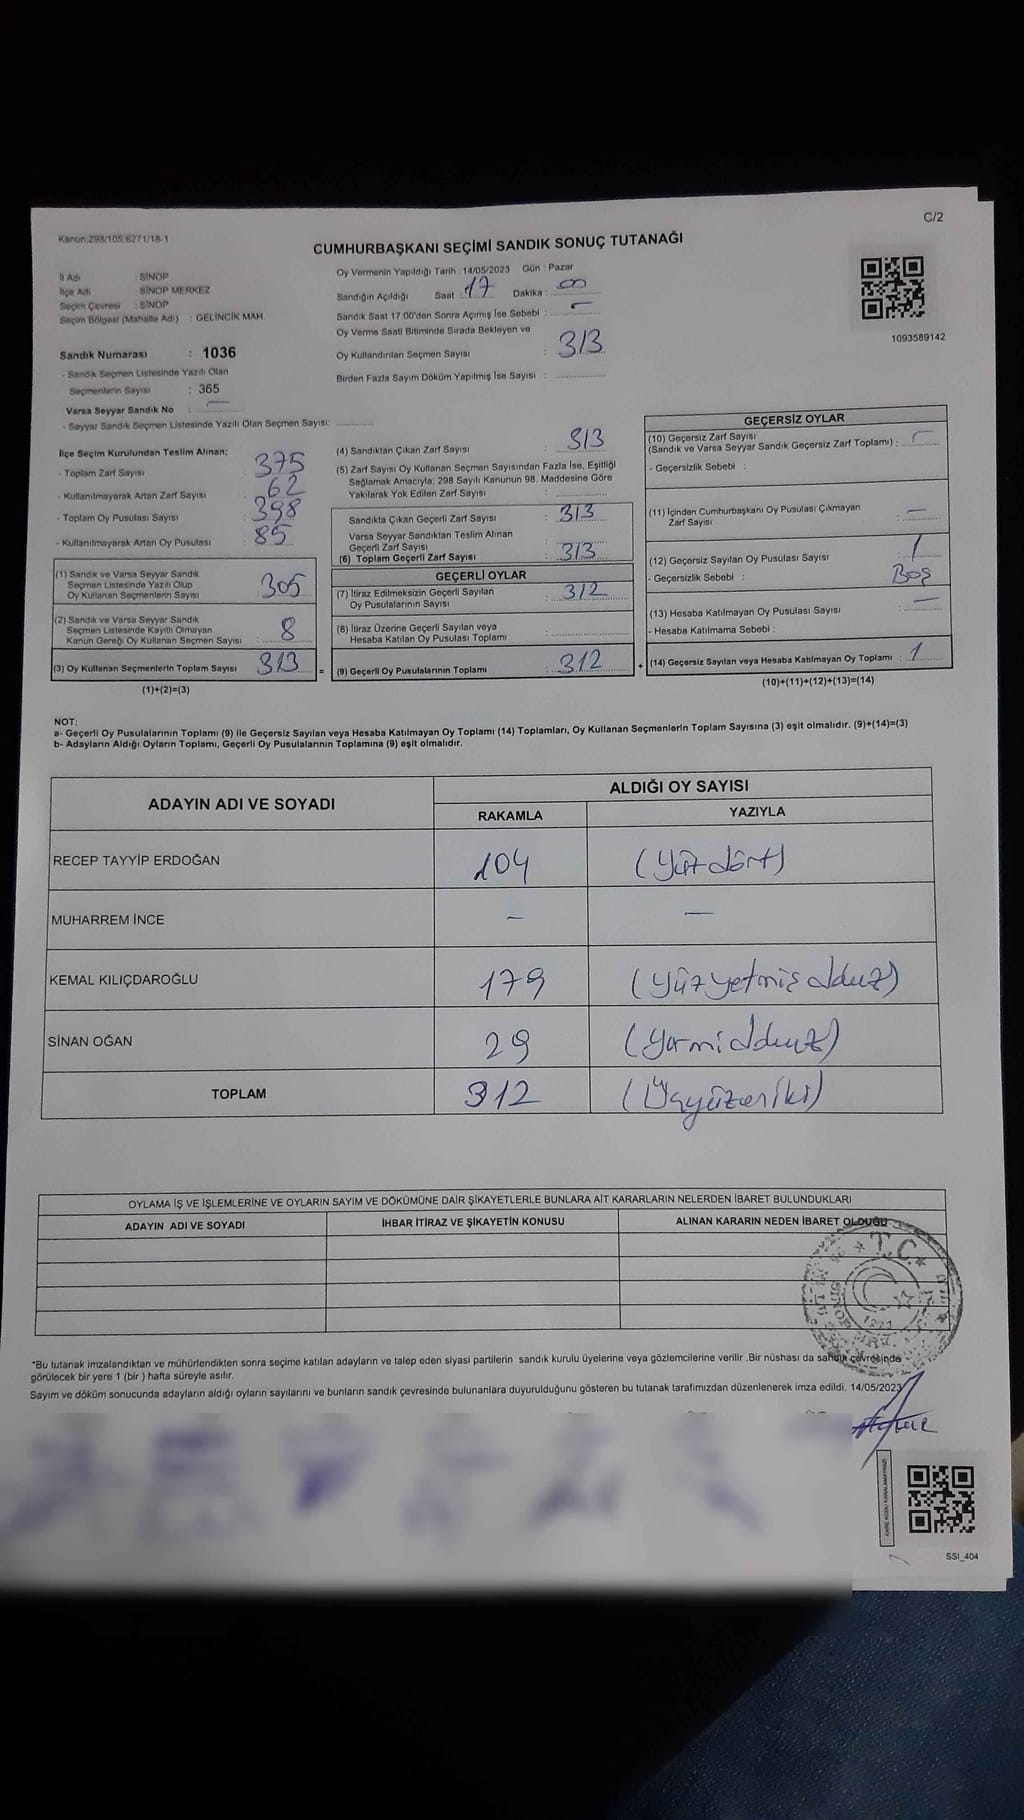 C/2
Kanun:298/105:6271/18-1
CUMHURBAŞKANI SEÇİMİ SANDIK SONUÇ TUTANAĞI
İl Adı : SİNOP
İlçe Adı : SİNOP MERKEZ
Seçim Çevresi : SİNOP
Seçim Bölgesi (Mahalle Adı) : GELİNCİK MAH.
Sandık Numarası : 1036
- Sandık Seçmen Listesinde Yazılı Olan
Seçmenlerin Sayısı : 365
Varsa Seyyar Sandık No :
- Seyyar Sandık Seçmen Listesinde Yazılı Olan Seçmen Sayısı:
Oy Vermenin Yapıldığı Tarih : 14/05/2023 Gün : Pazar
Sandığın Açıldığı Saat : 17 Dakika : 00
Sandık Saat 17.00'den Sonra Açımış İse Sebebi : -
Oy Verme Saati Bitiminde Sırada Bekleyen ve
Oy Kullandırılan Seçmen Sayısı : 313
Birden Fazla Sayım Döküm Yapılmış İse Sayısı :
1093589142
İlçe Seçim Kurulundan Teslim Alınan;
- Toplam Zarf Sayısı : 375
- Kullanılmayarak Artan Zarf Sayısı : 62
- Toplam Oy Pusulası Sayısı : 398
- Kullanılmayarak Artan Oy Pusulası : 85
(1) Sandık ve Varsa Seyyar Sandık
Seçmen Listesinde Yazılı Olup
Oy Kullanan Seçmenlerin Sayısı : 305
(2) Sandık ve Varsa Seyyar Sandık
Seçmen Listesinde Kayıtlı Olmayan
Kanun Gereği Oy Kullanan Seçmen Sayısı : 8
(3) Oy Kullanan Seçmenlerin Toplam Sayısı : 313 =
(1)+(2)=(3)
(4) Sandıktan Çıkan Zarf Sayısı : 313
(5) Zarf Sayısı Oy Kullanan Seçmen Sayısından Fazla İse, Eşitliği
Sağlamak Amacıyla; 298 Sayılı Kanunun 98. Maddesine Göre
Yakılarak Yok Edilen Zarf Sayısı :
Sandıkta Çıkan Geçerli Zarf Sayısı : 313
Varsa Seyyar Sandıktan Teslim Alınan
Geçerli Zarf Sayısı :
(6) Toplam Geçerli Zarf Sayısı : 313
GEÇERLİ OYLAR
(7) İtiraz Edilmeksizin Geçerli Sayılan
Oy Pusulalarının Sayısı : 312
(8) İtiraz Üzerine Geçerli Sayılan veya
Hesaba Katılan Oy Pusulası Toplamı :
(9) Geçerli Oy Pusulalarının Toplamı : 312 +
GEÇERSİZ OYLAR
(10) Geçersiz Zarf Sayısı
(Sandık ve Varsa Seyyar Sandık Geçersiz Zarf Toplamı) : -
- Geçersizlik Sebebi :
(11) İçinden Cumhurbaşkanı Oy Pusulası Çıkmayan
Zarf Sayısı : -
(12) Geçersiz Sayılan Oy Pusulası Sayısı : 1
- Geçersizlik Sebebi : Boş
(13) Hesaba Katılmayan Oy Pusulası Sayısı : -
- Hesaba Katılmama Sebebi :
(14) Geçersiz Sayılan veya Hesaba Katılmayan Oy Toplamı : 1
(10)+(11)+(12)+(13)=(14)
NOT:
a- Geçerli Oy Pusulalarının Toplamı (9) ile Geçersiz Sayılan veya Hesaba Katılmayan Oy Toplamı (14) Toplamları, Oy Kullanan Seçmenlerin Toplam Sayısına (3) eşit olmalıdır. (9)+(14)=(3)
b- Adayların Aldığı Oyların Toplamı, Geçerli Oy Pusulalarının Toplamına (9) eşit olmalıdır.
ADAYIN ADI VE SOYADI ALDIĞI OY SAYISI
RAKAMLA YAZIYLA
RECEP TAYYİP ERDOĞAN 104 (Yüzdört)
MUHARREM İNCE - -
KEMAL KILIÇDAROĞLU 179 (Yüzyetmiş dokuz)
SİNAN OĞAN 29 (Yirmi dokuz)
TOPLAM 312 (Üçyüzoniki)
OYLAMA İŞ VE İŞLEMLERİNE VE OYLARIN SAYIM VE DÖKÜMÜNE DAİR ŞİKAYETLERLE BUNLARA AİT KARARLARIN NELERDEN İBARET BULUNDUKLARI
ADAYIN ADI VE SOYADI İHBAR İTİRAZ VE ŞİKAYETİN KONUSU ALINAN KARARIN NEDEN İBARET OLDUĞU
T.C.
*Bu tutanak imzalandıktan ve mühürlendikten sonra seçime katılan adayların ve talep eden siyasi partilerin sandık kurulu üyelerine veya gözlemcilerine verilir .Bir nüshası da sandık çevresinde
görülecek bir yere 1 (bir ) hafta süreyle asılır.
Sayım ve döküm sonucunda adayların aldığı oyların sayılarını ve bunların sandık çevresinde bulunanlara duyurulduğunu gösteren bu tutanak tarafımızdan düzenlenerek imza edildi. 14/05/2023
KARE KODU KARALAMAYINIZ!
SSI_404